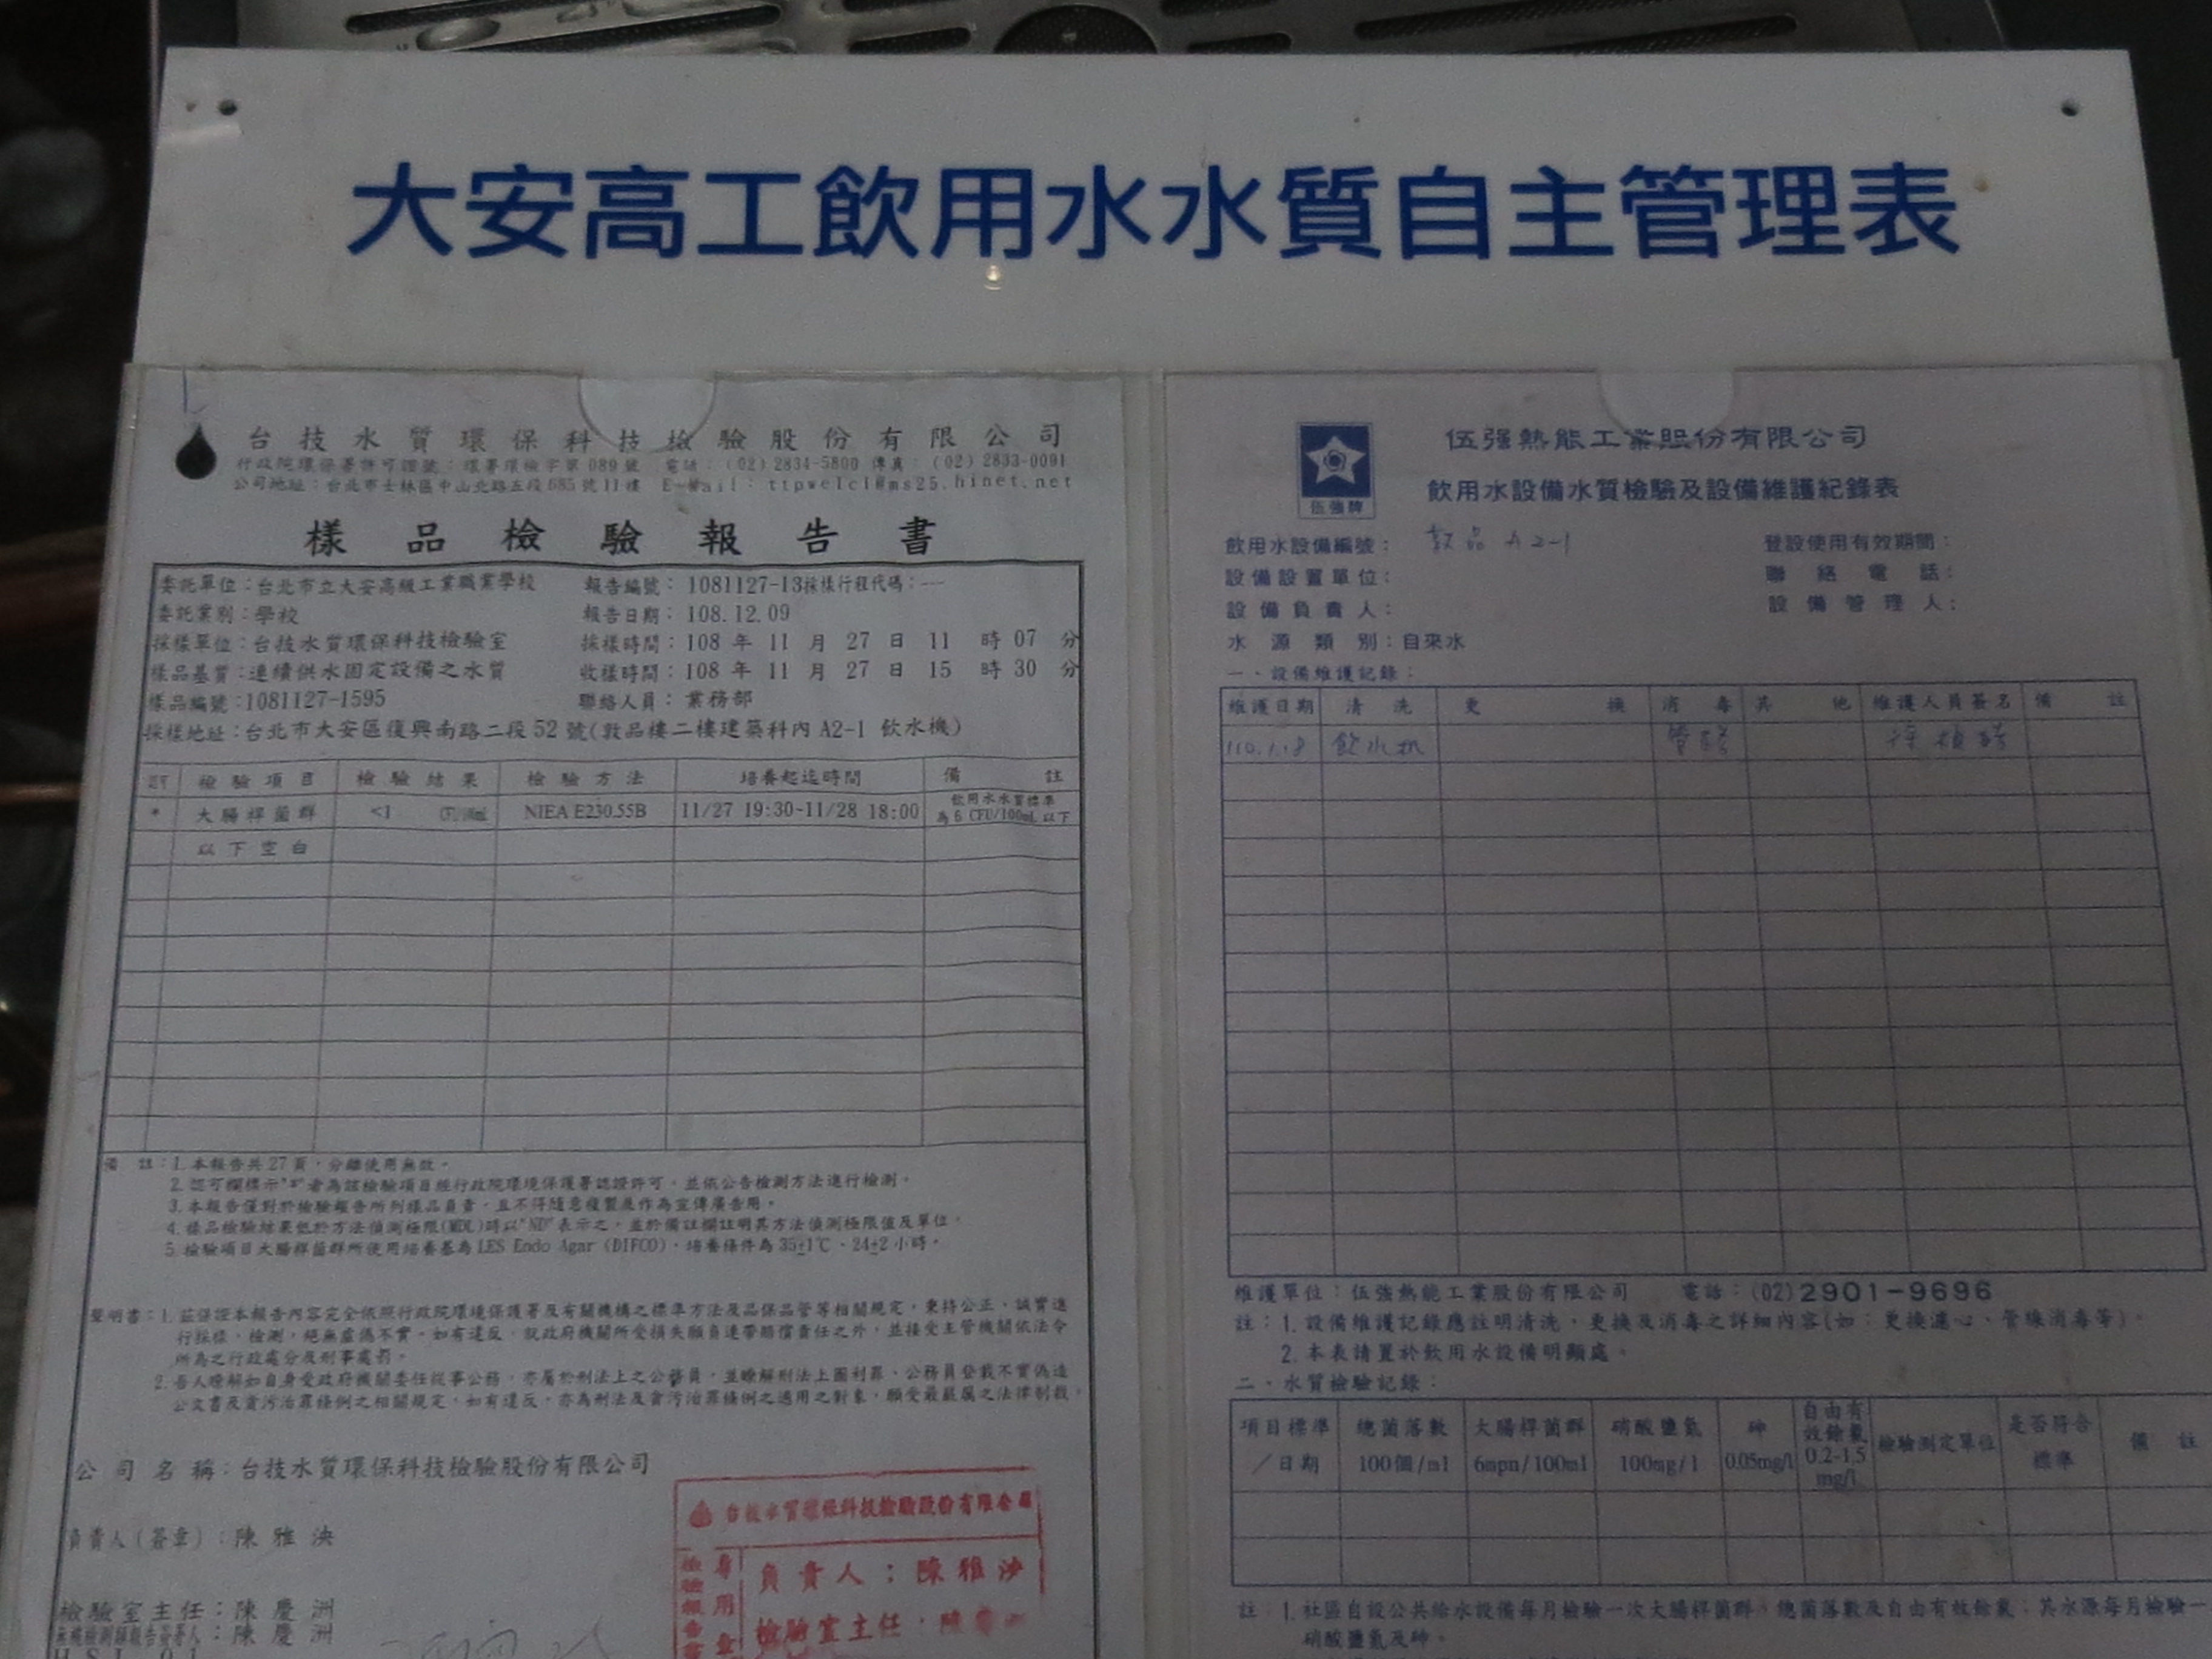 大安高工飲用水水質自主管理表
台技水質環保科技檢驗股份有限公司
行政院環保署許可證號：環署環檢字第089號 電話：(02)2834-5800 傳真：(02)2833-0091
公司地址：台北市士林區中山北路五段685號11樓 E-Mail: ttpwelcl@ms25.hinet.net
樣品檢驗報告書
委託單位：台北市立大安高級工業職業學校 報告編號：1081127-13採樣行程代碼：---
委託業別：學校 報告日期：108.12.09
採樣單位：台技水質環保科技檢驗室 採樣時間：108 年 11 月 27 日 11 時 07 分
樣品基質：連續供水固定設備之水質 收樣時間：108 年 11 月 27 日 15 時 30 分
樣品編號：1081127-1595 聯絡人員：業務部
採樣地址：台北市大安區復興南路二段52號(敦品樓二樓建築科內 A2-1 飲水機)
檢驗項目 檢驗結果 檢驗方法 培養起迄時間 備註
* 大腸桿菌群 <1 NIEA E230.55B 11/27 19:30~11/28 18:00 飲用水水質標準
為 6 CFU/100mL 以下
以下空白
備註：1.本報告共27頁，分離使用無效。
2.認可欄標示"*"者為該檢驗項目經行政院環境保護署認證許可，並依公告檢測方法進行檢測。
3.本報告僅對於檢驗報告所列樣品負責，且不得隨意複製及作為宣傳廣告用。
4.樣品檢驗結果低於方法偵測極限(MDL)時以"ND"表示之，並於備註欄註明其方法偵測極限值及單位。
5.檢驗項目大腸桿菌群所使用培養基為LES Endo Agar (DIFCO)，培養條件為35±1℃、24±2小時。
聲明書：1.茲保證本報告內容完全依照行政院環境保護署及有關機構之標準方法及品保品管等相關規定，秉持公正、誠實進
行採樣、檢測，絕無虛偽不實。如有違反，就政府機關所受損失願負連帶賠償責任之外，並接受主管機關依法令
所為之行政處分及刑事處罰。
2.吾人瞭解如自身受政府機關委任從事公務，亦屬於刑法上之公務員，並瞭解刑法上圖利罪、公務員登載不實偽造
公文書及貪污治罪條例之相關規定，如有違反，亦為刑法及貪污治罪條例之適用之對象，願受最嚴厲之法律制裁。
公司名稱：台技水質環保科技檢驗股份有限公司
負責人(簽章)：陳雅泱
檢驗室主任：陳慶洲
無機檢測類報告簽署人：陳慶洲
台技水質環保科技檢驗股份有限公司
檢驗報告專用章
負責人：陳雅泱
檢驗室主任：陳
伍強牌
伍強熱能工業股份有限公司
飲用水設備水質檢驗及設備維護紀錄表
飲用水設備編號：敦品 A2-1 登設使用有效期間：
設備設置單位： 聯絡電話：
設備負責人： 設備管理人：
水源類別：自來水
一、設備維護記錄：
維護日期 清洗 更換 消毒 其他 維護人員簽名 備註
110.1.18 飲水机
維護單位：伍強熱能工業股份有限公司 電話：(02)2901-9696
註：1.設備維護記錄應註明清洗，更換及消毒之詳細內容(如：更換濾心、管線消毒等)。
2.本表請置於飲用水設備明顯處。
二、水質檢驗記錄：
項目標準／日期 總菌落數 100個/ml 大腸桿菌群 6mpn/100ml 硝酸鹽氮 100mg/l 砷 0.05mg/l 自由有效餘氯 0.2-1.5 mg/l 檢驗測定單位 是否符合標準 備註
註：1.社區自設公共給水設備每月檢驗一次大腸桿菌群、總菌落數及自由有效餘氯；其水源每月檢驗一
硝酸鹽氮及砷。